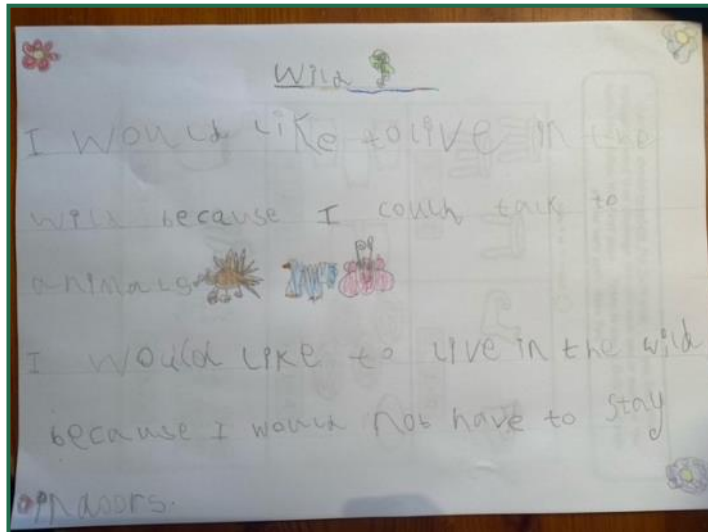 Wild
I would like to live in the
wild because I could talk to
animals
I would like to live in the wild
because I would not have to stay
indoors.